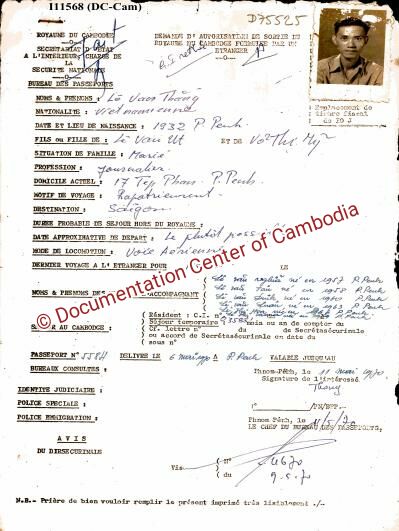 111568 (DC-Cam)
D75525
ROYAUME DU CAMBODGE
SECRETARIAT D'ETAT
A L'INTERIEUR, CHARGE DE LA
SECURITE NATIONALE
BUREAU DES PASSEPORTS
DEMANDE D'AUTORISATION DE SORTIE DU
ROYAUME DU CAMBODGE FORMULEE PAR UN
ETRANGER
Emplacement de
timbre fiscal
de 20 J
NOMS & PRENOMS : Lê Van Thang
NATIONALITE : Vietnamienne
DATE ET LIEU DE NAISSANCE : 1932 P. Penh
FILS ou FILLE DE : Lê Van Ut ET DE Vo Thi My
SITUATION DE FAMILLE : Marié
PROFESSION : Journalier
DOMICILE ACTUEL : 17 Tep Phan. P. Penh.
MOTIF DE VOYAGE : Rapatriement
DESTINATION : Saigon
DUREE PROBABLE DE SEJOUR HORS DU ROYAUME :
DATE APPROXIMATIVE DE DEPART : Le plutôt possible
MODE DE LOCOMOTION : Voie Aérienne
DERNIER VOYAGE A L'ETRANGER POUR LE
NOMS & PRENOMS DES ACCOMPAGNANT
né en 1957 P. Penh
né en 1958 P. Penh
né en 1960 P. Penh
né en 1963 P. Penh
SEJOUR AU CAMBODGE :
Résident : C.I. n°
Séjour temporaire mois ou an de compter du
Cf. lettre n° du de Secrétasécurimale
ou accord de Secrétasécurimale en date du
sous n°
PASSEPORT N° 5584 DELIVRE LE 6 mai 1970 A P. Penh VALABLE JUSQU'AU
BUREAUX CONSULTES :
Phnom-Pênh, le 11 mai 1970
Signature de l'intéressé
Thang
IDENTITE JUDICIAIRE :
POLICE SPECIALE :
POLICE EMMIGRATION :
Phnom Pênh, le 11/5/70
LE CHEF DU BUREAU DES PASSEPORTS,
A V I S
DU DIRSECURIMALE
Visa
N° 4670
du 9.5.70
N.B.- Prière de bien vouloir remplir le présent imprimé très lisiblement ./-
© Documentation Center of Cambodia